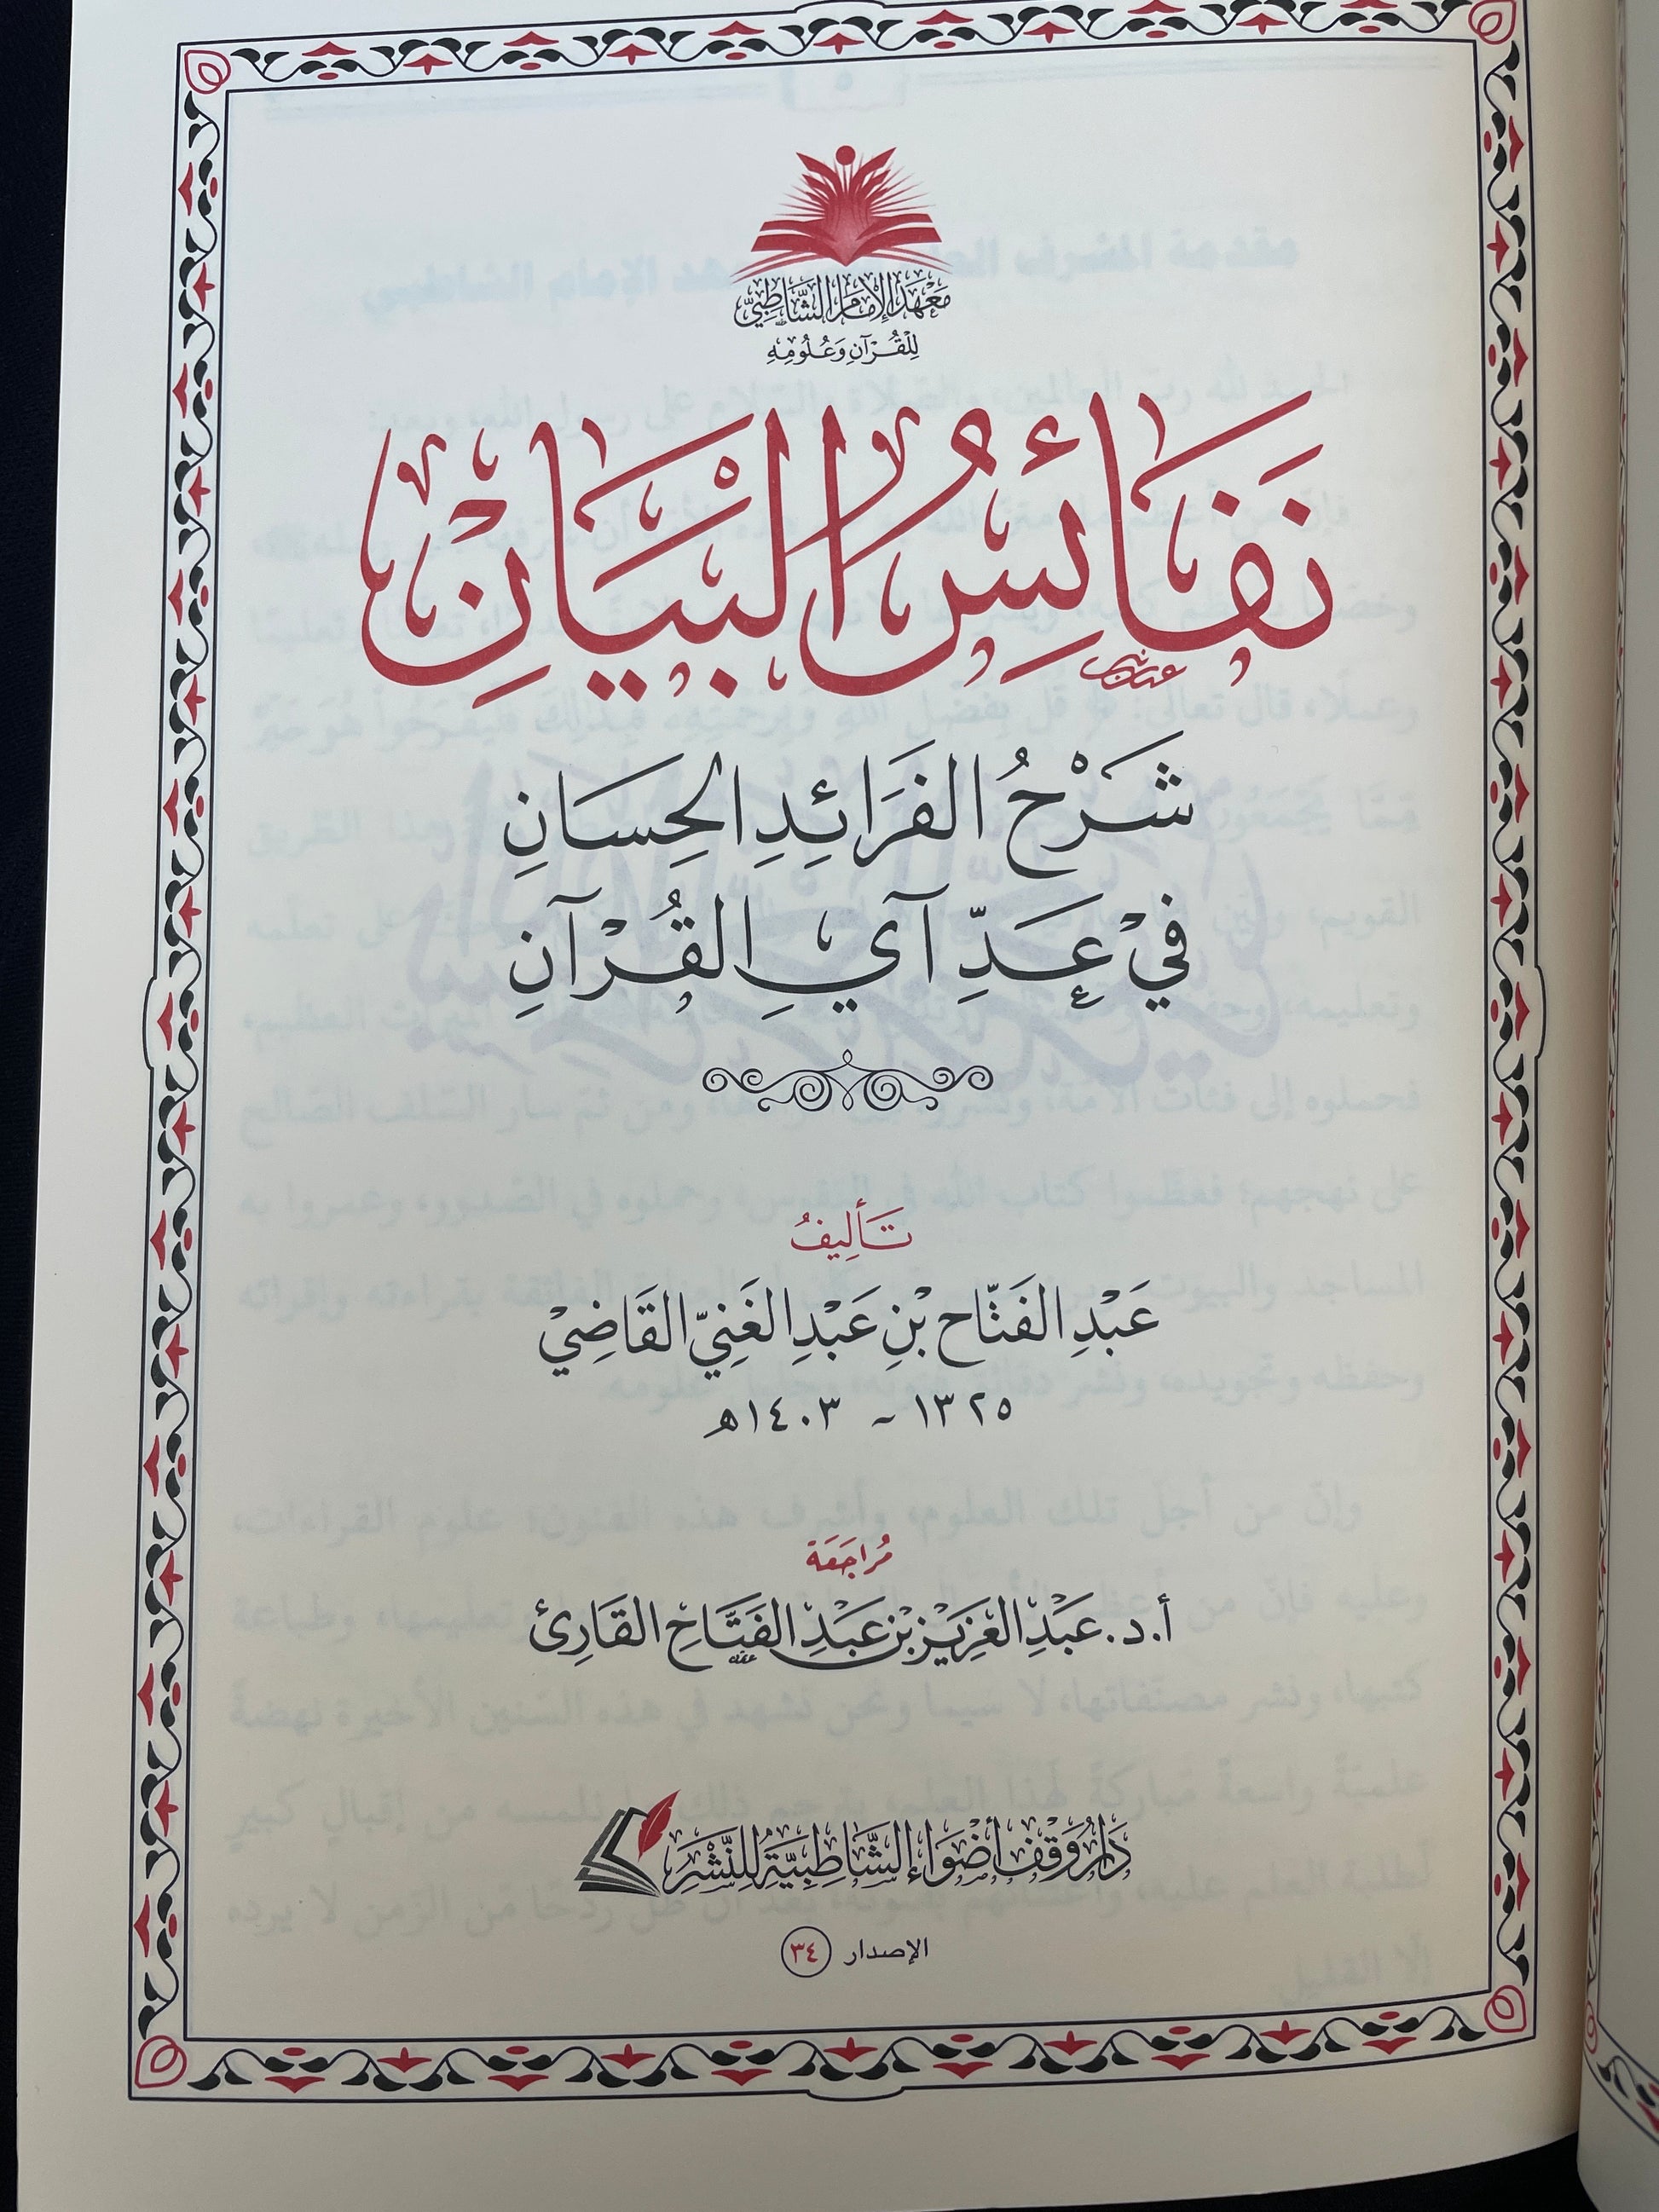 معهد الإمام الشاطبي
للقرآن وعلومه
نَفَائِسُ البَيَانِ
شَرْحُ الفَرَائِدِ الحِسَانِ
فِيْ عَدِّ آيِ القُرْآنِ
تَأليفُ
عَبْدِ الفَتَّاحِ بْنِ عَبْدِ الغَنِيِّ القَاضِيْ
١٣٢٥ - ١٤٠٣هـ
مُرَاجَعَة
أ.د. عَبْدِ العَزِيزِ بْنِ عَبْدِ الفَتَّاحِ القَارِئ
دَارُ وَقْفِ أَضْوَاءِ الشَّاطِبِيَّةِ لِلنَّشْرِ
الإصدار ٣٤